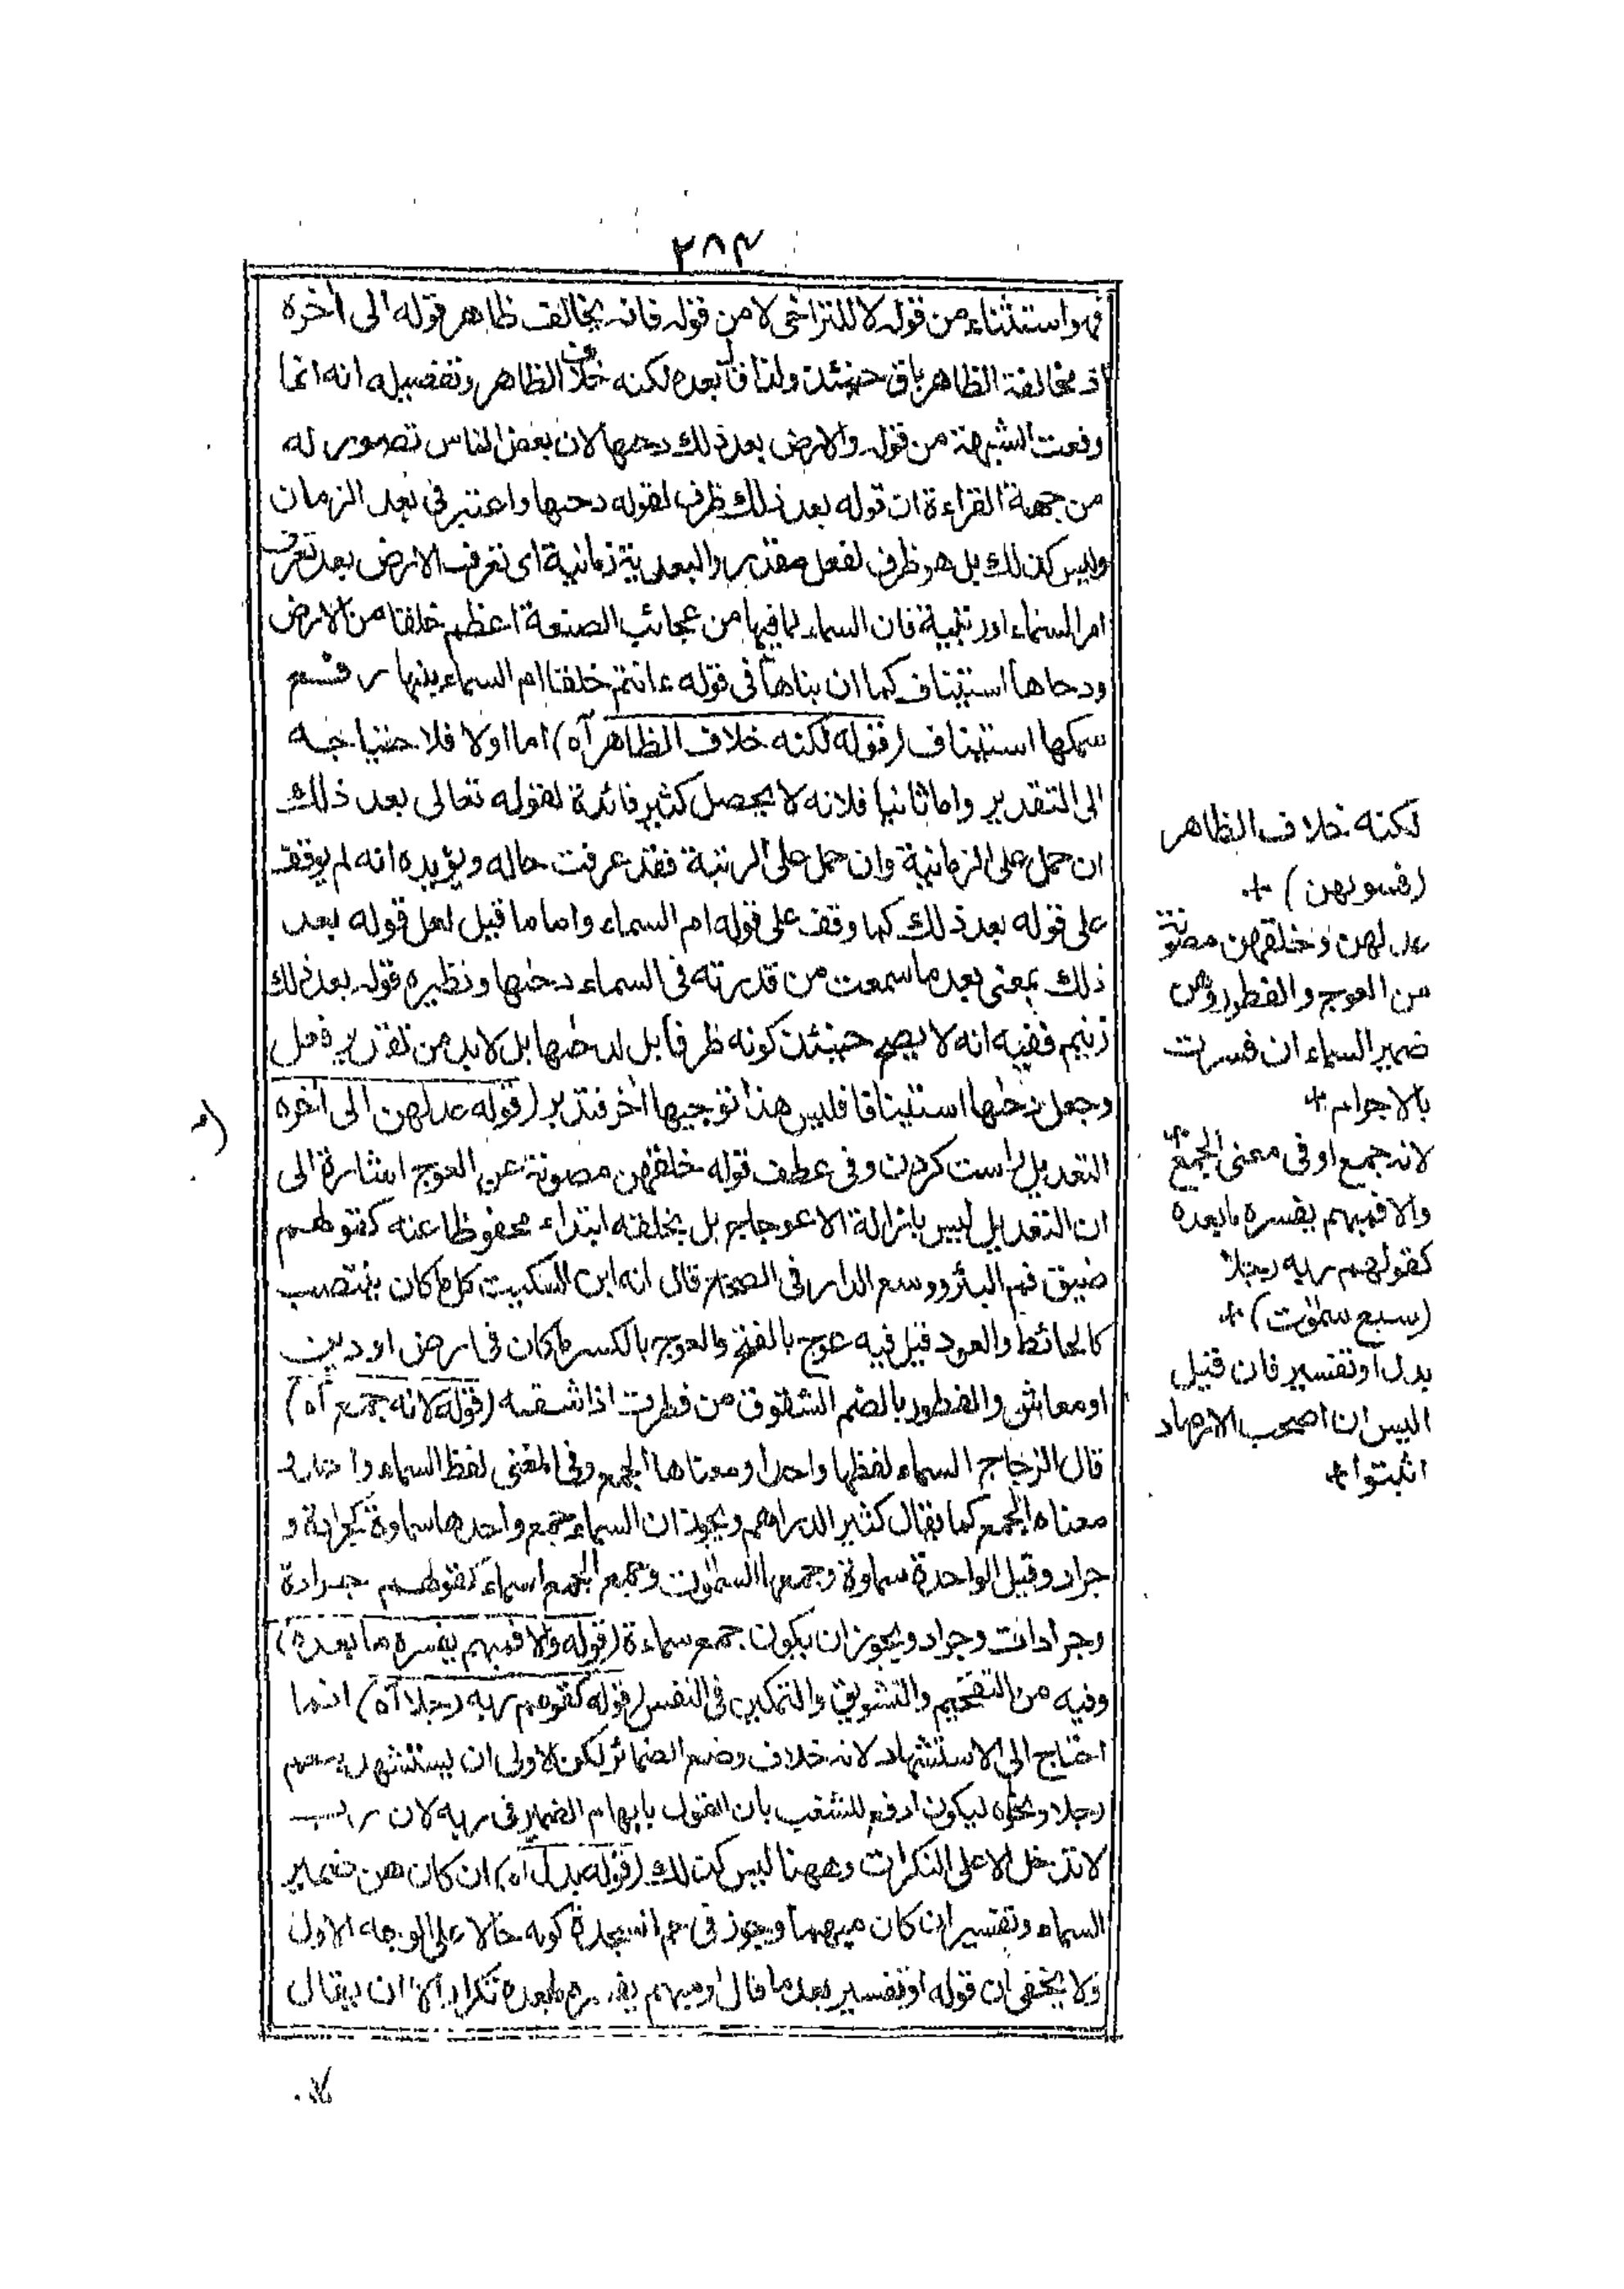 ٢٨٣
فهو استثناء من قوله لا للتراخى لا من قوله فانه يخالف ظاهر قوله الى اخره
اذ مخالفة الظاهر باق حينئذ ولذا قال بعده لكنه خلاف الظاهر وتفصيله انه انما
وقعت الشبهة من قوله والارض بعد ذلك دحها لان بعض الناس تصور له
من جهة القراءة ان قوله بعد ذلك ظرف لقوله دحها واعتبر فى بعد الزمان
وليس كذلك بل هو ظرف لفعل مقدر والبعدية زمانية اى تعرف الارض بعد تعرف
امر السماء او رتبية فان السماء لما فيها من عجائب الصنعة اعظم خلقا من الارض
ودحاها استيناف كما ان بناها فى قوله ءانتم خلقا ام السماء بنها رفع
سمكها استيناف (قوله لكنه خلاف الظاهر آه) اما اولا فلاحتياجه
الى التقدير واما ثانيا فلانه لا يحصل كثير فائدة لقوله تعالى بعد ذلك
ان حمل على الزمانية وان حمل على الرتبة فقد عرفت حاله ويؤيده انه لم يوقف
على قوله بعد ذلك كما وقف على قوله ام السماء واما ما قيل لعل قوله بعد
ذلك بمعنى بعد ما سمعت من قدرته فى السماء دحها ونظيره قوله بعد ذلك
زنيم ففيه انه لا يصح حينئذ كونه ظرفا بل لدحها بل لابد من تقدير فعل
وجعل دحها استينافا فليس هذا توجيها اخر فتدبر (قوله عدلهن الى اخره
التعديل راست كردن وفى عطف قوله خلقهن مصونة عن العوج اشارة الى
ان التعديل ليس بازالة الاعوجاج بل بخلقته ابتداء محفوظا عنه كقولهم
ضيق فم البئر ووسع الدار فى الصحاح قال انه ابن السكيت كل ما كان ينتصب
كالحائط والعود قيل فيه عوج بالفتح والعوج بالكسر ما كان فى ارض او دين
او معاش والفطور بالضم الشقوق من فطرت اذا شقه (قوله لانه جمع آه)
قال الزجاج السماء لفظها واحد ومعناها الجمع وفى المغنى لفظ السماء واحد
معناه الجمع كما يقال كثير الدراهم ويجوز ان السماء جمع واحدها سماوة كجرادة و
جراد وقيل الواحدة سماوة وجمعها السموت وجمع الجمع اسماء كقولهم جرادة
وجرادات وجراد ويجوز ان يكون جمع سماءة (قوله والا فمبهم يفسره ما بعده)
وفيه من التفخيم والتشويق والتمكين فى النفس (قوله كقولهم ربه رجلا آه) انما
احتاج الى الاستشهاد لانه خلاف وضع الضمائر لكن الاولى ان يستشهد بنعم
رجلا ونحوه ليكون ادفع للشغب بان القول بابهام الضمير فى ربه لان رب
لا تدخل الا على النكرات وههنا ليس كذلك (قوله بدل آه) ان كان هن ضمير
السماء وتفسير ان كان مبهما ويجوز فى كونه حالا على الوجه الاول
ولا يخفى ان قوله او تفسير بعد ما قال او مبهم يفسره ما بعده تكرار الا ان يقال
لكنه خلاف الظاهر
(فسوىهن) +
عدلهن وخلقهن مصونة
من العوج والفطور وهن
ضمير السماء ان فسرت
بالاجرام +
لانه جمع او فى معنى الجمع
والا فمبهم يفسره ما بعده
كقولهم ربه رجلا
(سبع سموت) +
بدل او تفسير فان قيل
اليس ان اصحب الارصاد
اثبتوا +